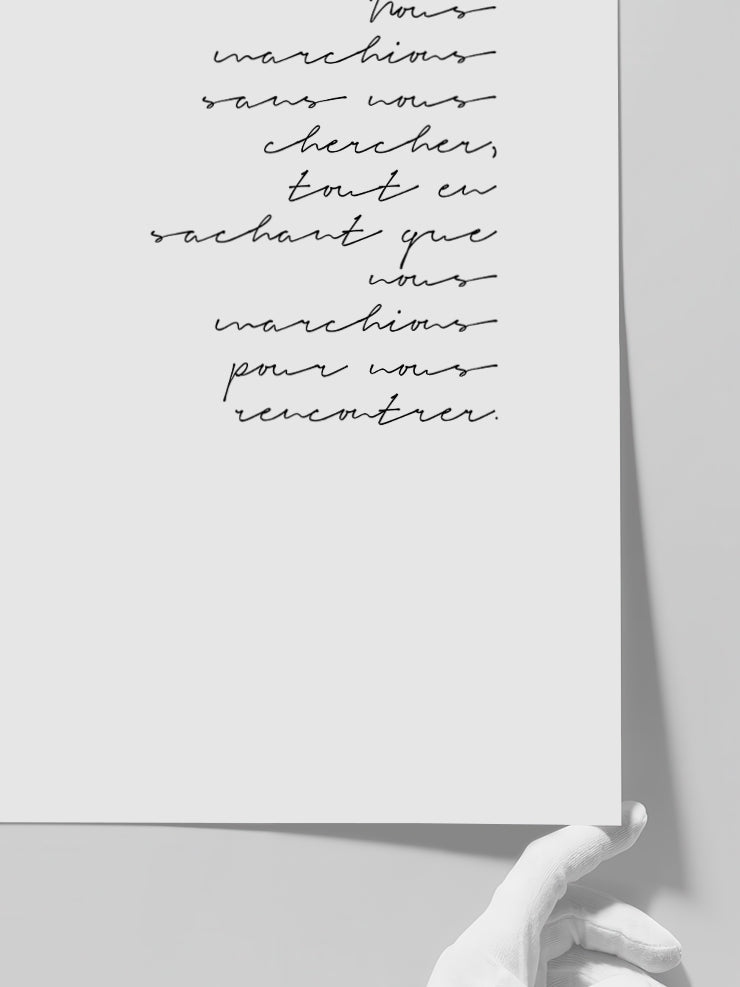 Nous
marchions
sans nous
chercher,
tout en
sachant que
nous
marchions
pour nous
rencontrer.